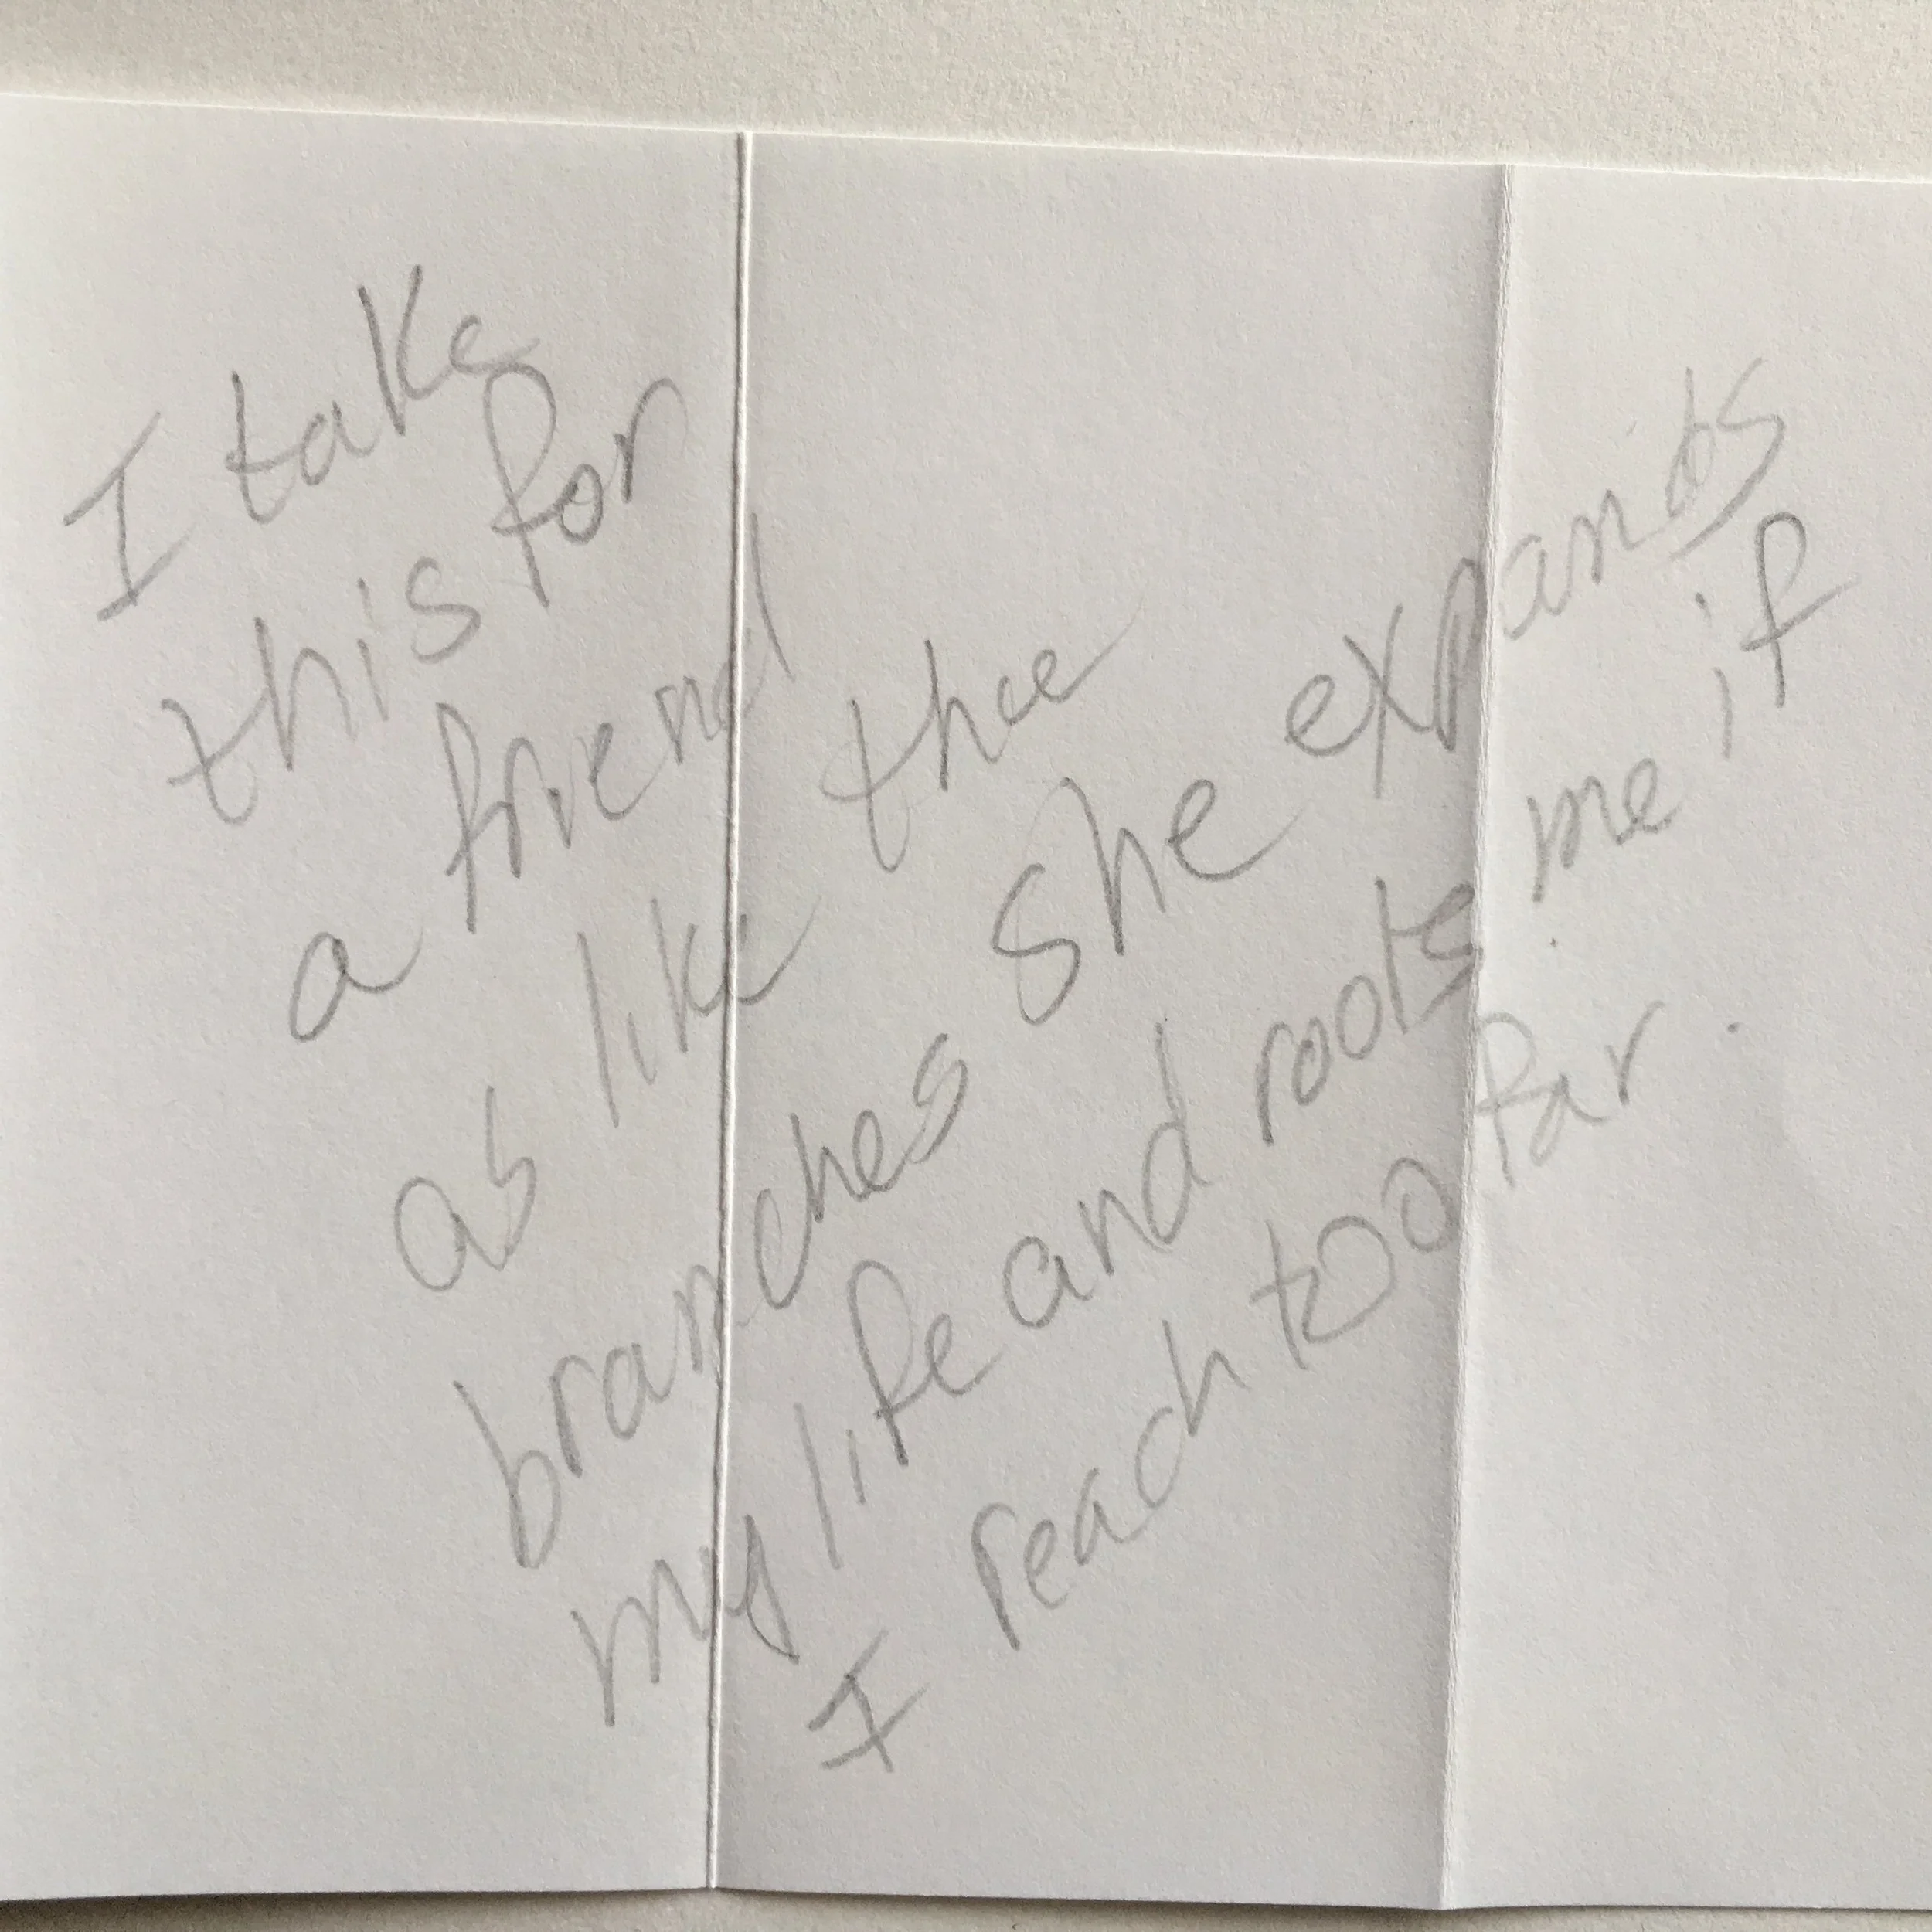 I take
this for
a friend
as like thee
branches she expands
my life and roots me if
I reach too far.